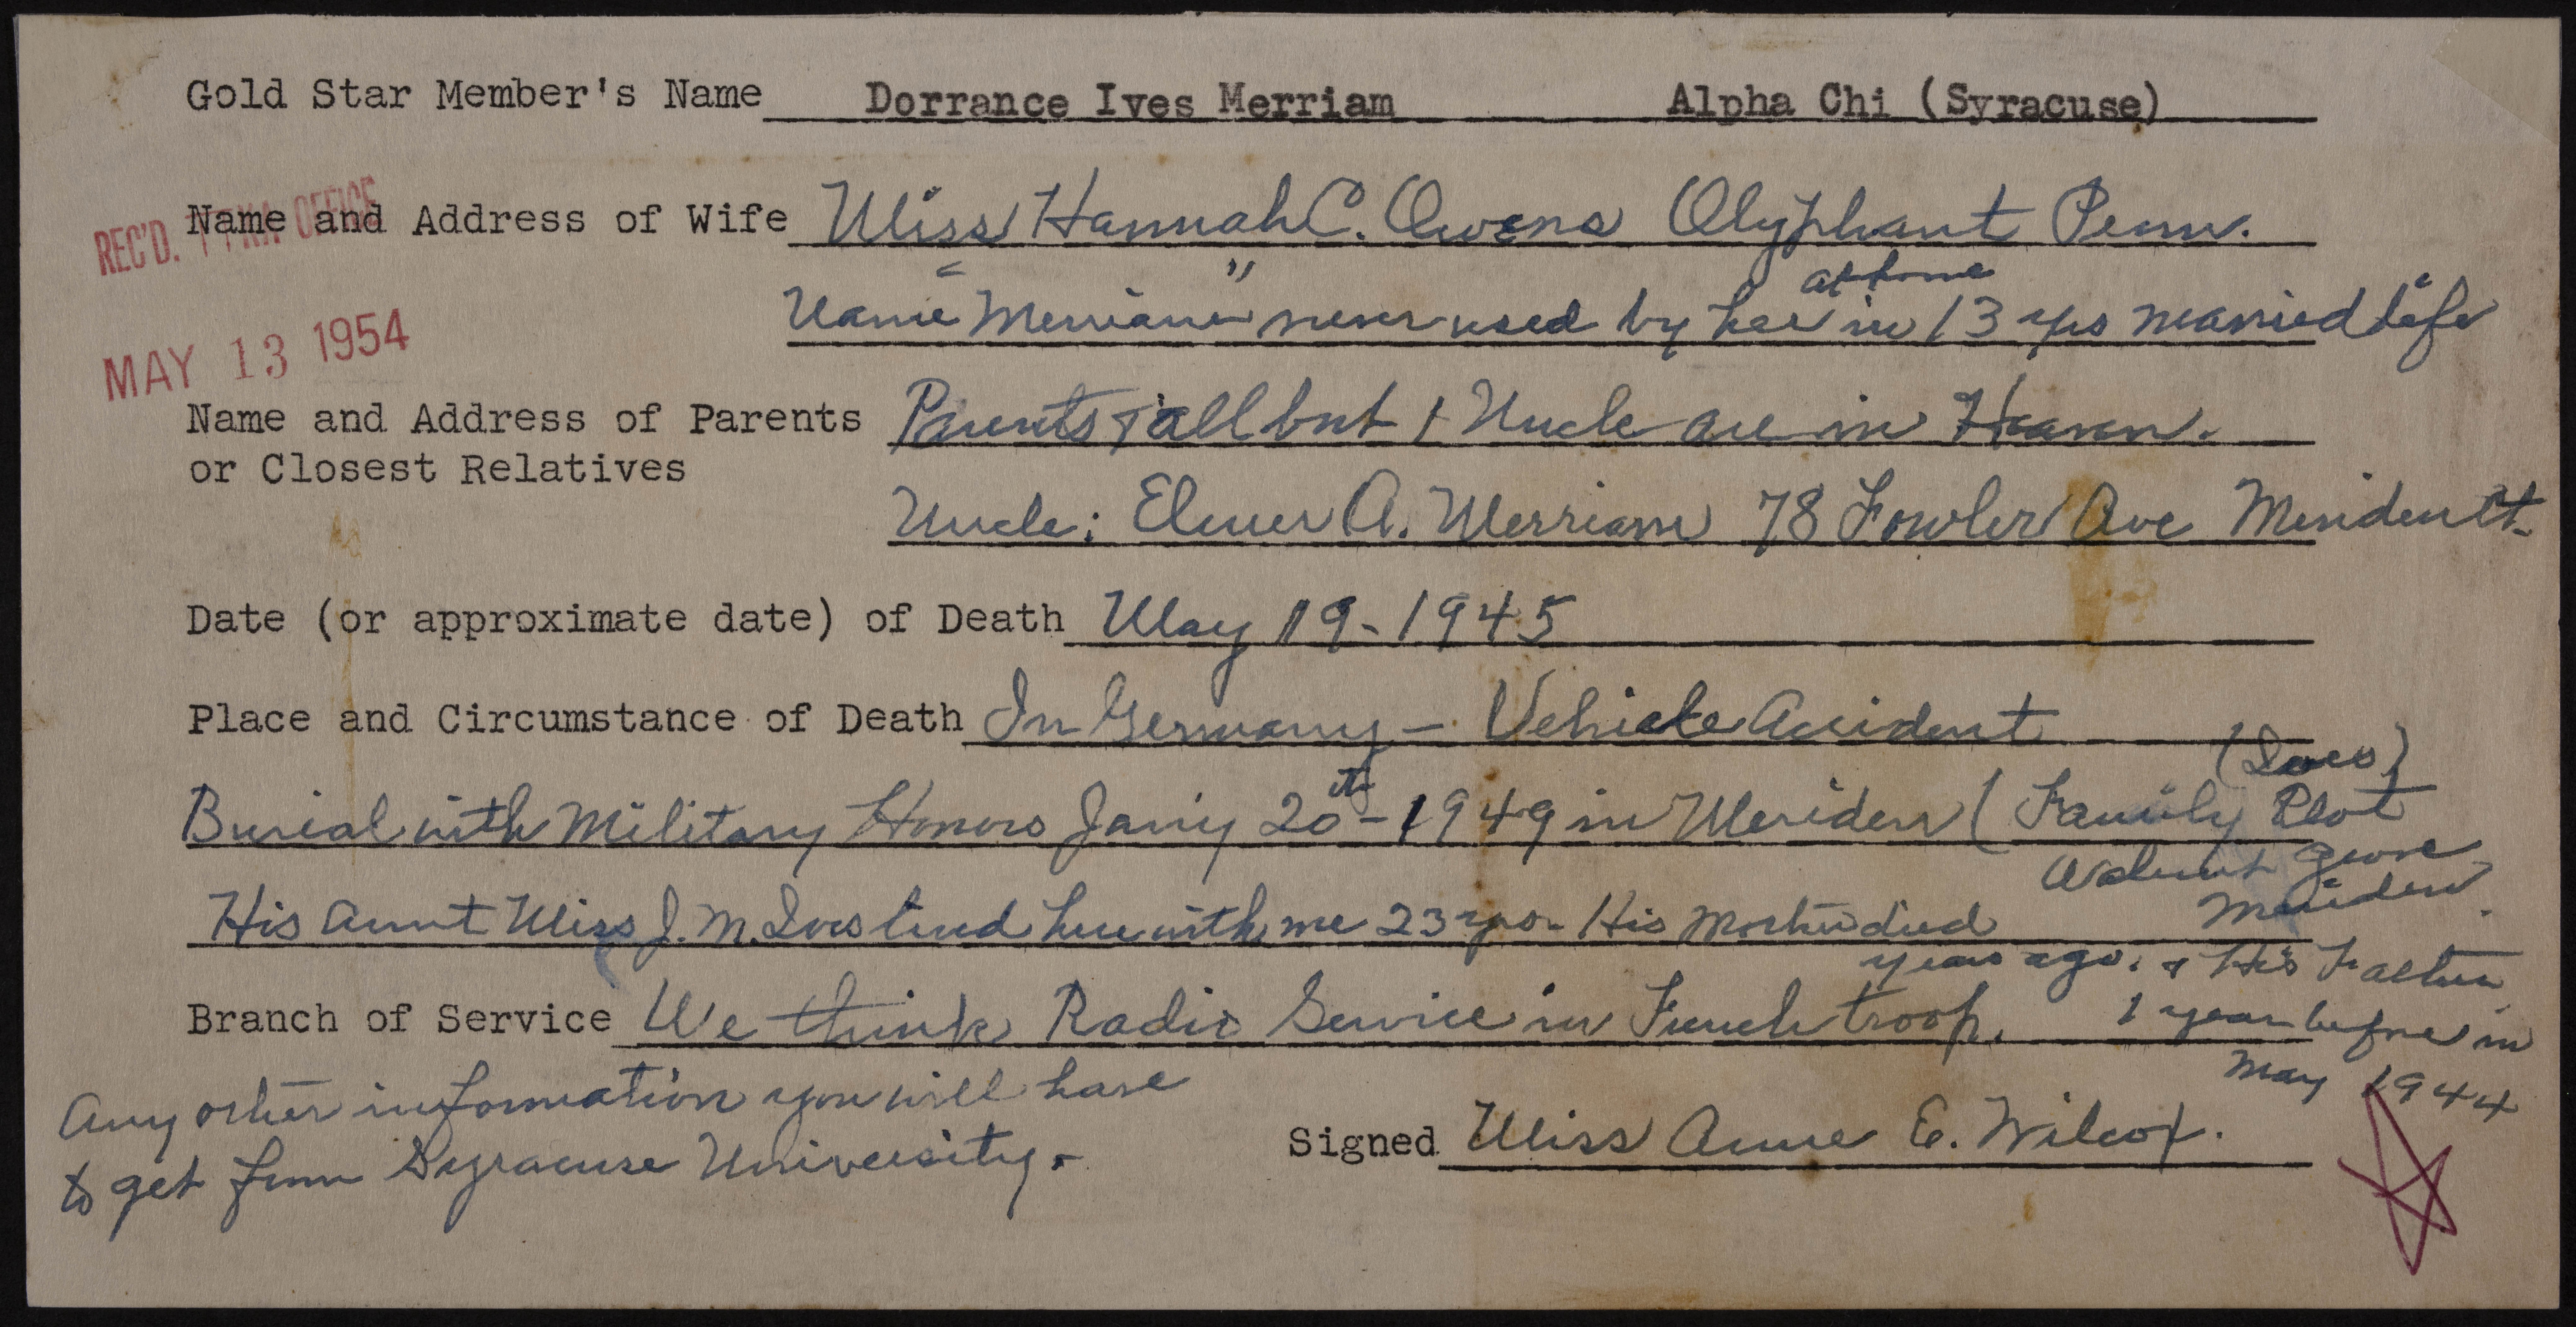 Gold Star Member's Name Dorrance Ives Merriam Alpha Chi (Syracuse)
REC'D. ΠΚΑ OFFICE
Name and Address of Wife Miss Hannah C. Owens Olyphant Penn.
at home
Name "Merriam" never used by her in 13 yrs married life
MAY 13 1954
Name and Address of Parents Parents & all but 1 Uncle are in Heaven.
or Closest Relatives
Uncle: Elmer A. Merriam 78 Fowler Ave Meriden Ct.
Date (or approximate date) of Death May 19-1945
Place and Circumstance of Death In Germany - Vehicle Accident
(Ives)
Burial with Military Honors Jan'y 20th-1949 in Meriden ( Family Plot
Walnut Grove
Meriden.
His Aunt Miss J. M. Ives lived here with me 23 yrs. His Mother died
years ago. & His Father
Branch of Service We think Radio Service in French troop. 1 year before in
May 1944
Any other information you will have
to get from Syracuse University.
Signed Miss Anne E. Wilcox.